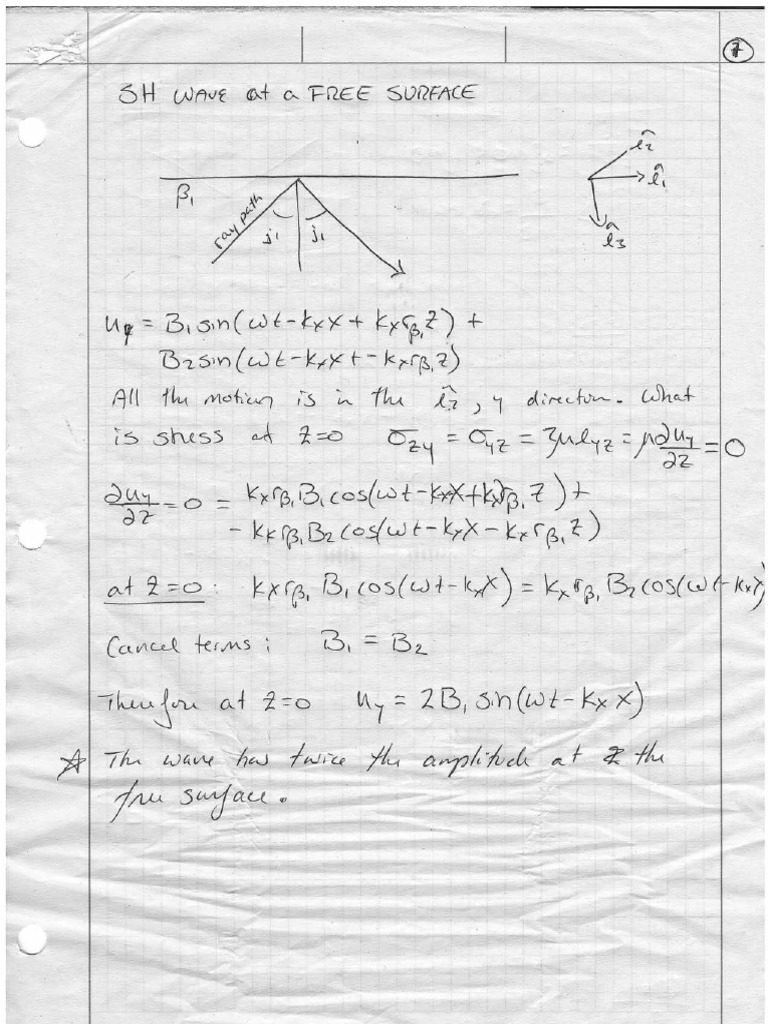 7
SH WAVE at a FREE SURFACE
ê₂
β₁
ê₁
ray path
j₁ j₁
ê₃
u_y = B₁ sin(ωt - kₓx + kₓr_β₁z) +
B₂ sin(ωt - kₓx + - kₓr_β₁z)
All the motion is in the ê₂, y direction. What
is stress at z=0 σ_zy = σ_yz = 2μe_yz = μ ∂u_y/∂z = 0
∂u_y/∂z = 0 = kₓr_β₁B₁ cos(ωt - kₓx + kₓr_β₁z) +
- kₓr_β₁B₂ cos(ωt - kₓx - kₓr_β₁z)
at z=0: kₓr_β₁ B₁ cos(ωt - kₓx) = kₓr_β₁ B₂ cos(ωt - kₓx)
Cancel terms: B₁ = B₂
Therefore at z=0 u_y = 2B₁ sin(ωt - kₓx)
☆ The wave has twice the amplitude at the
free surface.